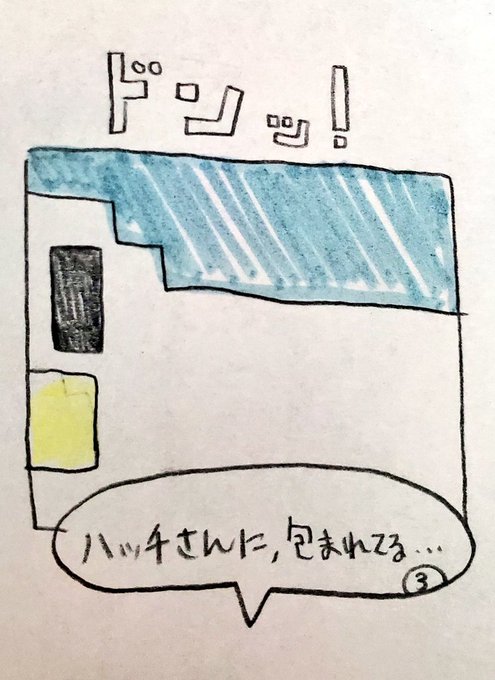 ドンッ!
ハッチさんに,包まれてる...
③